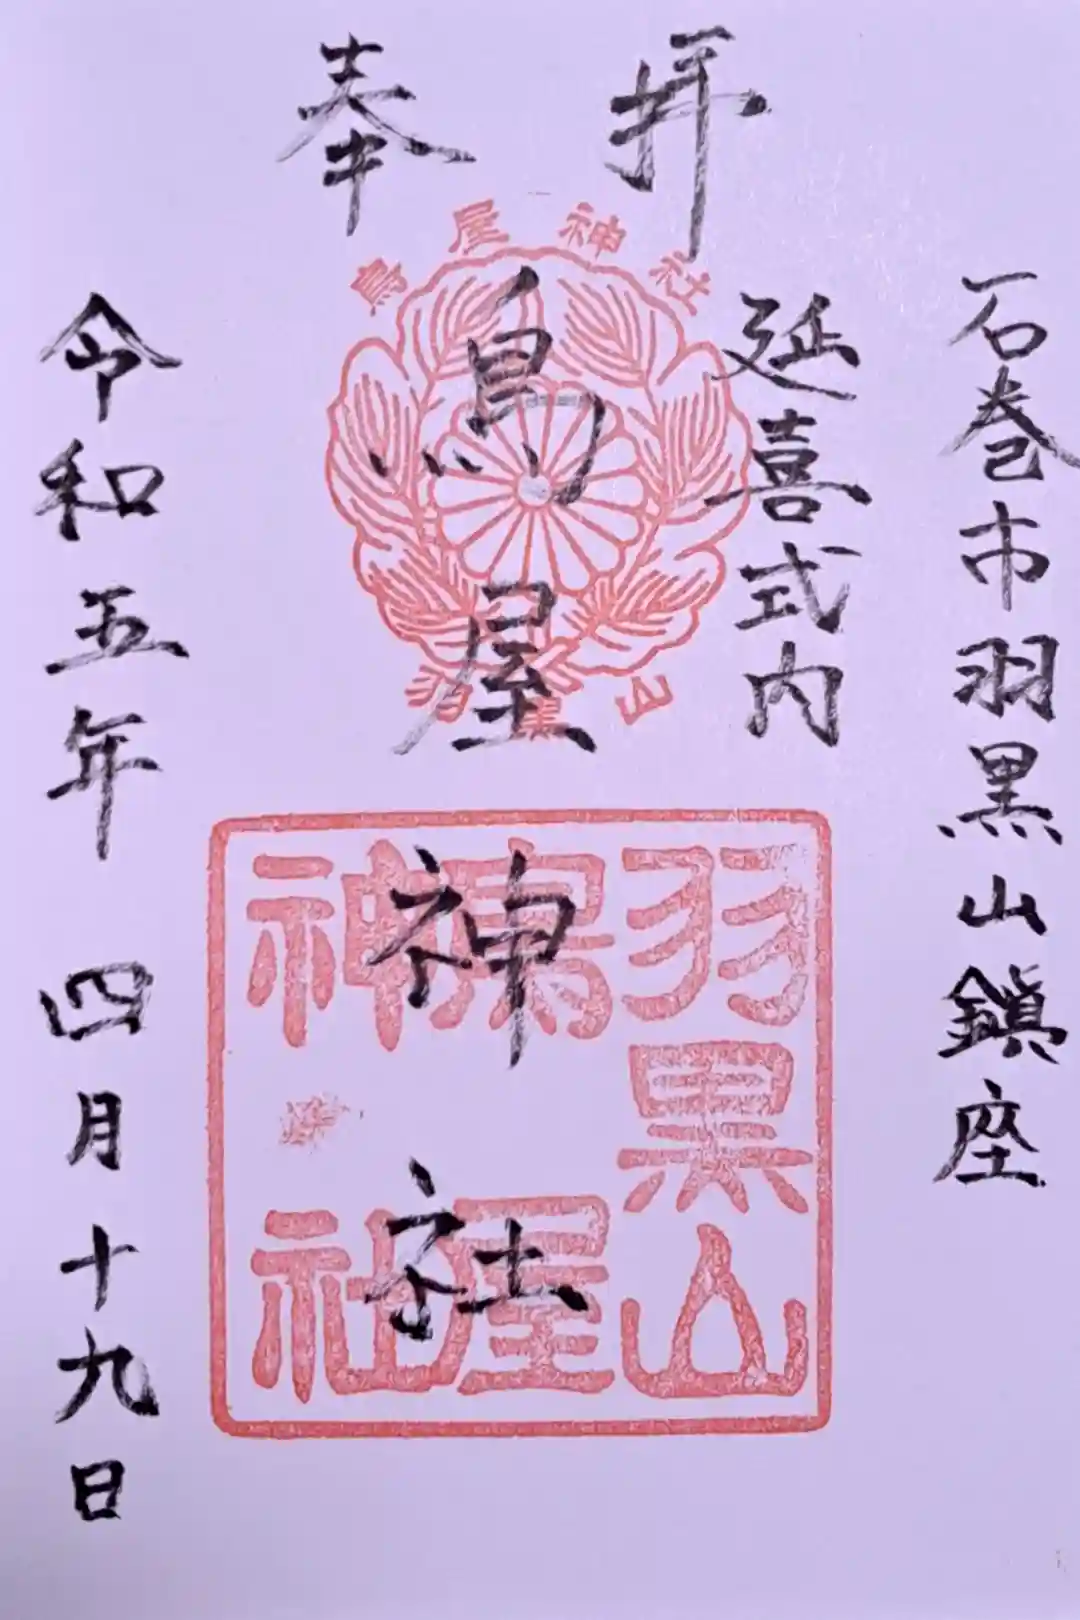 奉拝
石巻市羽黒山鎮座
延喜式内
鳥屋神社
令和五年 四月十九日
鳥屋神社
羽黒山
羽黒山
鳥屋
神社